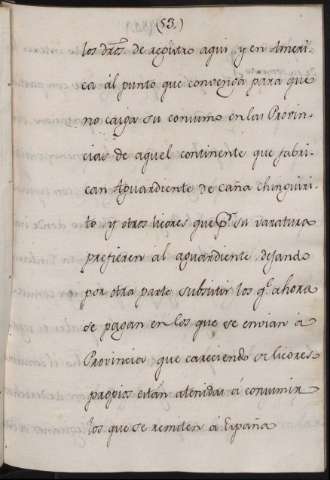 (53.)
los dr̃os. de registro aqui, y en Ameri-
ca ál punto que convenga para que
no caiga su consumo en las Provin-
cias de aquel continente que fabri-
can Aguardiente de caña chinguiri-
to y otros licores que pr. su varatura
prefieren al aguardiente, dejando
por otra parte subsistir los q.e ahora
se pagan en los que se envian á
Provincias que careciendo de licores
propios estan atenidas á consumir
los que se remiten á España